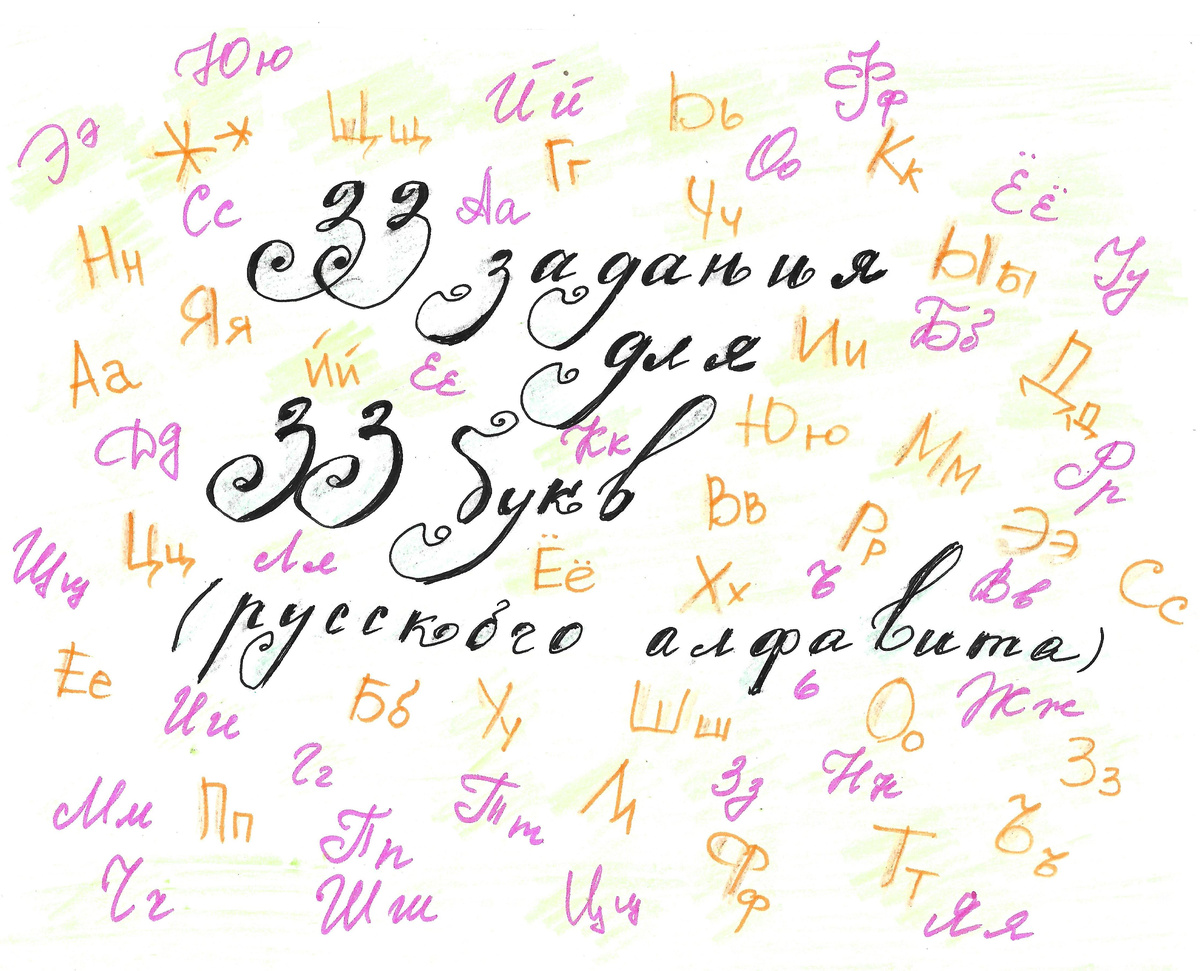 Юю
Ээ Жж Щщ Йй Ьь Фф
Гг Оо Кк
Сс Аа Чч Ёё
33 задания
Нн Ыы Уу
Яя Ии Бб
для
Аа Йй Ее Дд
33 букв
Дд Кк Юю Мм Рр
Вв
Щщ Цц Лл Ёё Хх Рр ъ Ээ Вв Сс
(русского алфавита)
Ее Ии Бб Уу Шш ь Оо Жж
Гг Зз Нн Зз
Мм Пп Тт Лл Ъъ
Пп Фф Тт
Чч Шш Цц Яя